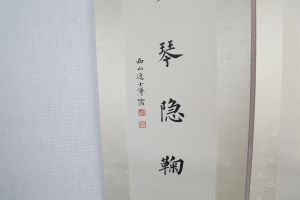 琴隐鞠
西山逸士溥儒